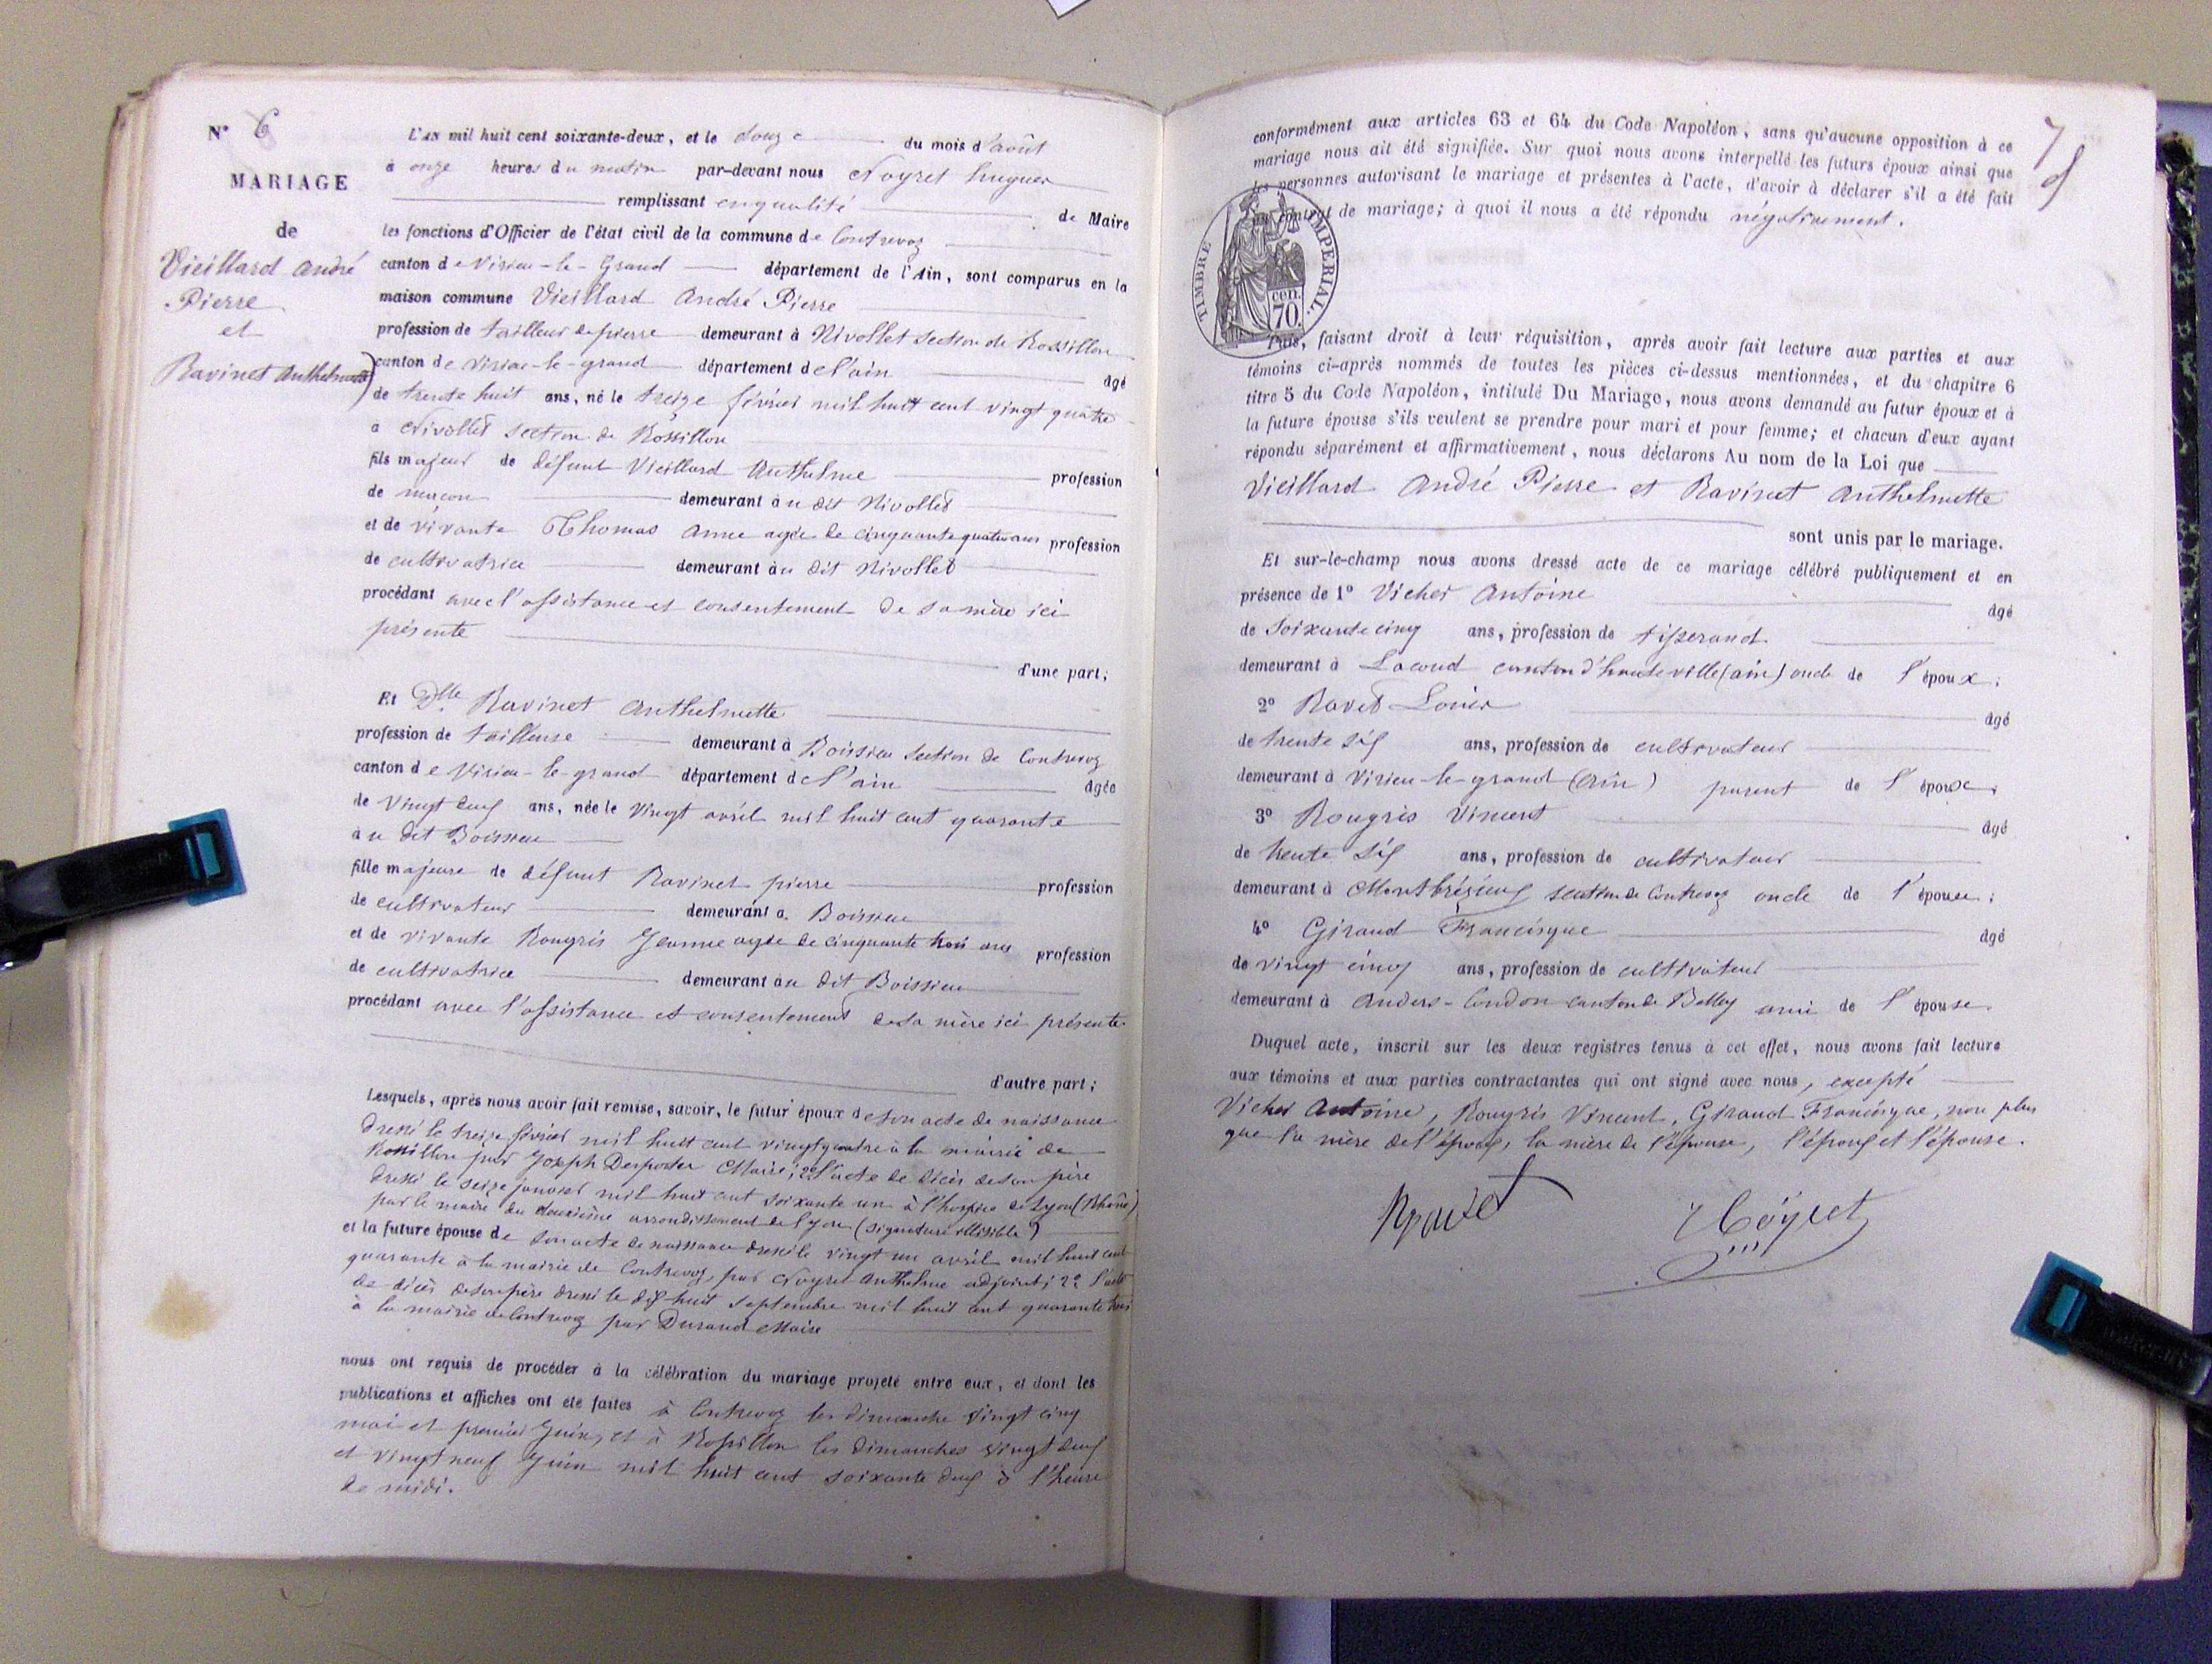 N° 6
MARIAGE
de
Vieillard André
Pierre
et
Ravinet Anthelmette
L'AN mil huit cent soixante-deux, et le douze du mois d'août
à onze heures du matin par-devant nous Noyret hugues
remplissant en qualité de Maire
les fonctions d'Officier de l'état civil de la commune de Contrevoz
canton de Virieu-le-Grand département de l'Ain, sont comparus en la
maison commune Vieillard André Pierre
profession de tailleur de pierre demeurant à Nivollet section de Rossillon
canton de Virieu-le-grand département de l'ain âgé
de trente huit ans, né le treize février mil huit cent vingt quatre
à Nivollet section de Rossillon
fils majeur de défunt Vieillard Anthelme profession
de maçon demeurant au dit Nivollet
et de vivante Thomas Anne agée de cinquante quatre ans profession
de cultivatrice demeurant au dit Nivollet
procédant avec l'assistance et consentement de sa mère ici
présente
d'une part;
Et Dlle Ravinet Anthelmette
profession de tailleuse demeurant à Boissieu section de Contrevoz
canton de Virieu-le-grand département de l'ain âgée
de vingt deux ans, née le vingt avril mil huit cent quarante
au dit Boissieu
fille majeure de défunt Ravinet pierre profession
de cultivateur demeurant à Boissieu
et de vivante Rougris Jeanne agée de cinquante trois ans profession
de cultivatrice demeurant au dit Boissieu
procédant avec l'assistance et consentement de sa mère ici présente
d'autre part;
Lesquels, après nous avoir fait remise, savoir, le futur époux de son acte de naissance
dressé le treize février mil huit cent vingt quatre à la mairie de
Rossillon par Joseph Desportes Maire; 2° l'acte de décès de son père
dressé le seize janvier mil huit cent soixante un à l'hospice de Lyon (Rhône)
par le maire du deuxième arrondissement de Lyon (signature illisible)
et la future épouse de son acte de naissance dressé le vingt un avril mil huit cent
quarante à la mairie de Contrevoz, par Noyret Anthelme adjoint; 2° l'acte
de décès de son père dressé le dix huit septembre mil huit cent quarante trois
à la mairie de Contrevoz par Durand Maire
nous ont requis de procéder à la célébration du mariage projeté entre eux, et dont les
publications et affiches ont été faites à Contrevoz les dimanche vingt cinq
mai et premier Juin, et à Rossillon les dimanches vingt deux
et vingt neuf Juin mil huit cent soixante deux à l'heure
de midi.
7
conformément aux articles 63 et 64 du Code Napoléon, sans qu'aucune opposition à ce
mariage nous ait été signifiée. Sur quoi nous avons interpellé les futurs époux ainsi que
les personnes autorisant le mariage et présentes à l'acte, d'avoir à déclarer s'il a été fait
un contrat de mariage; à quoi il nous a été répondu négativement.
TIMBRE IMPERIAL.
cen.
70.
Puis, faisant droit à leur réquisition, après avoir fait lecture aux parties et aux
témoins ci-après nommés de toutes les pièces ci-dessus mentionnées, et du chapitre 6
titre 5 du Code Napoléon, intitulé Du Mariage, nous avons demandé au futur époux et à
la future épouse s'ils veulent se prendre pour mari et pour femme; et chacun d'eux ayant
répondu séparément et affirmativement, nous déclarons Au nom de la Loi que
Vieillard André Pierre et Ravinet Anthelmette
sont unis par le mariage.
Et sur-le-champ nous avons dressé acte de ce mariage célébré publiquement et en
présence de 1° Vicher Antoine âgé
de soixante cinq ans, profession de tisserand
demeurant à Lacoud canton d'hauteville (ain) oncle de l'époux;
2° Ravet Louis âgé
de trente six ans, profession de cultivateur
demeurant à Virieu-le-grand (Ain) parent de l'époux;
3° Rougris Vincent âgé
de trente six ans, profession de cultivateur
demeurant à Montbrézieux section de Contrevoz oncle de l'épouse;
4° Giraud Francisque âgé
de vingt cinq ans, profession de cultivateur
demeurant à Anders-Condon canton de Belley ami de l'épouse.
Duquel acte, inscrit sur les deux registres tenus à cet effet, nous avons fait lecture
aux témoins et aux parties contractantes qui ont signé avec nous, excepté
Vicher Antoine, Rougris Vincent, Giraud Francisque, non plus
que la mère de l'époux, la mère de l'épouse, l'époux et l'épouse.
Ravet
Noyret